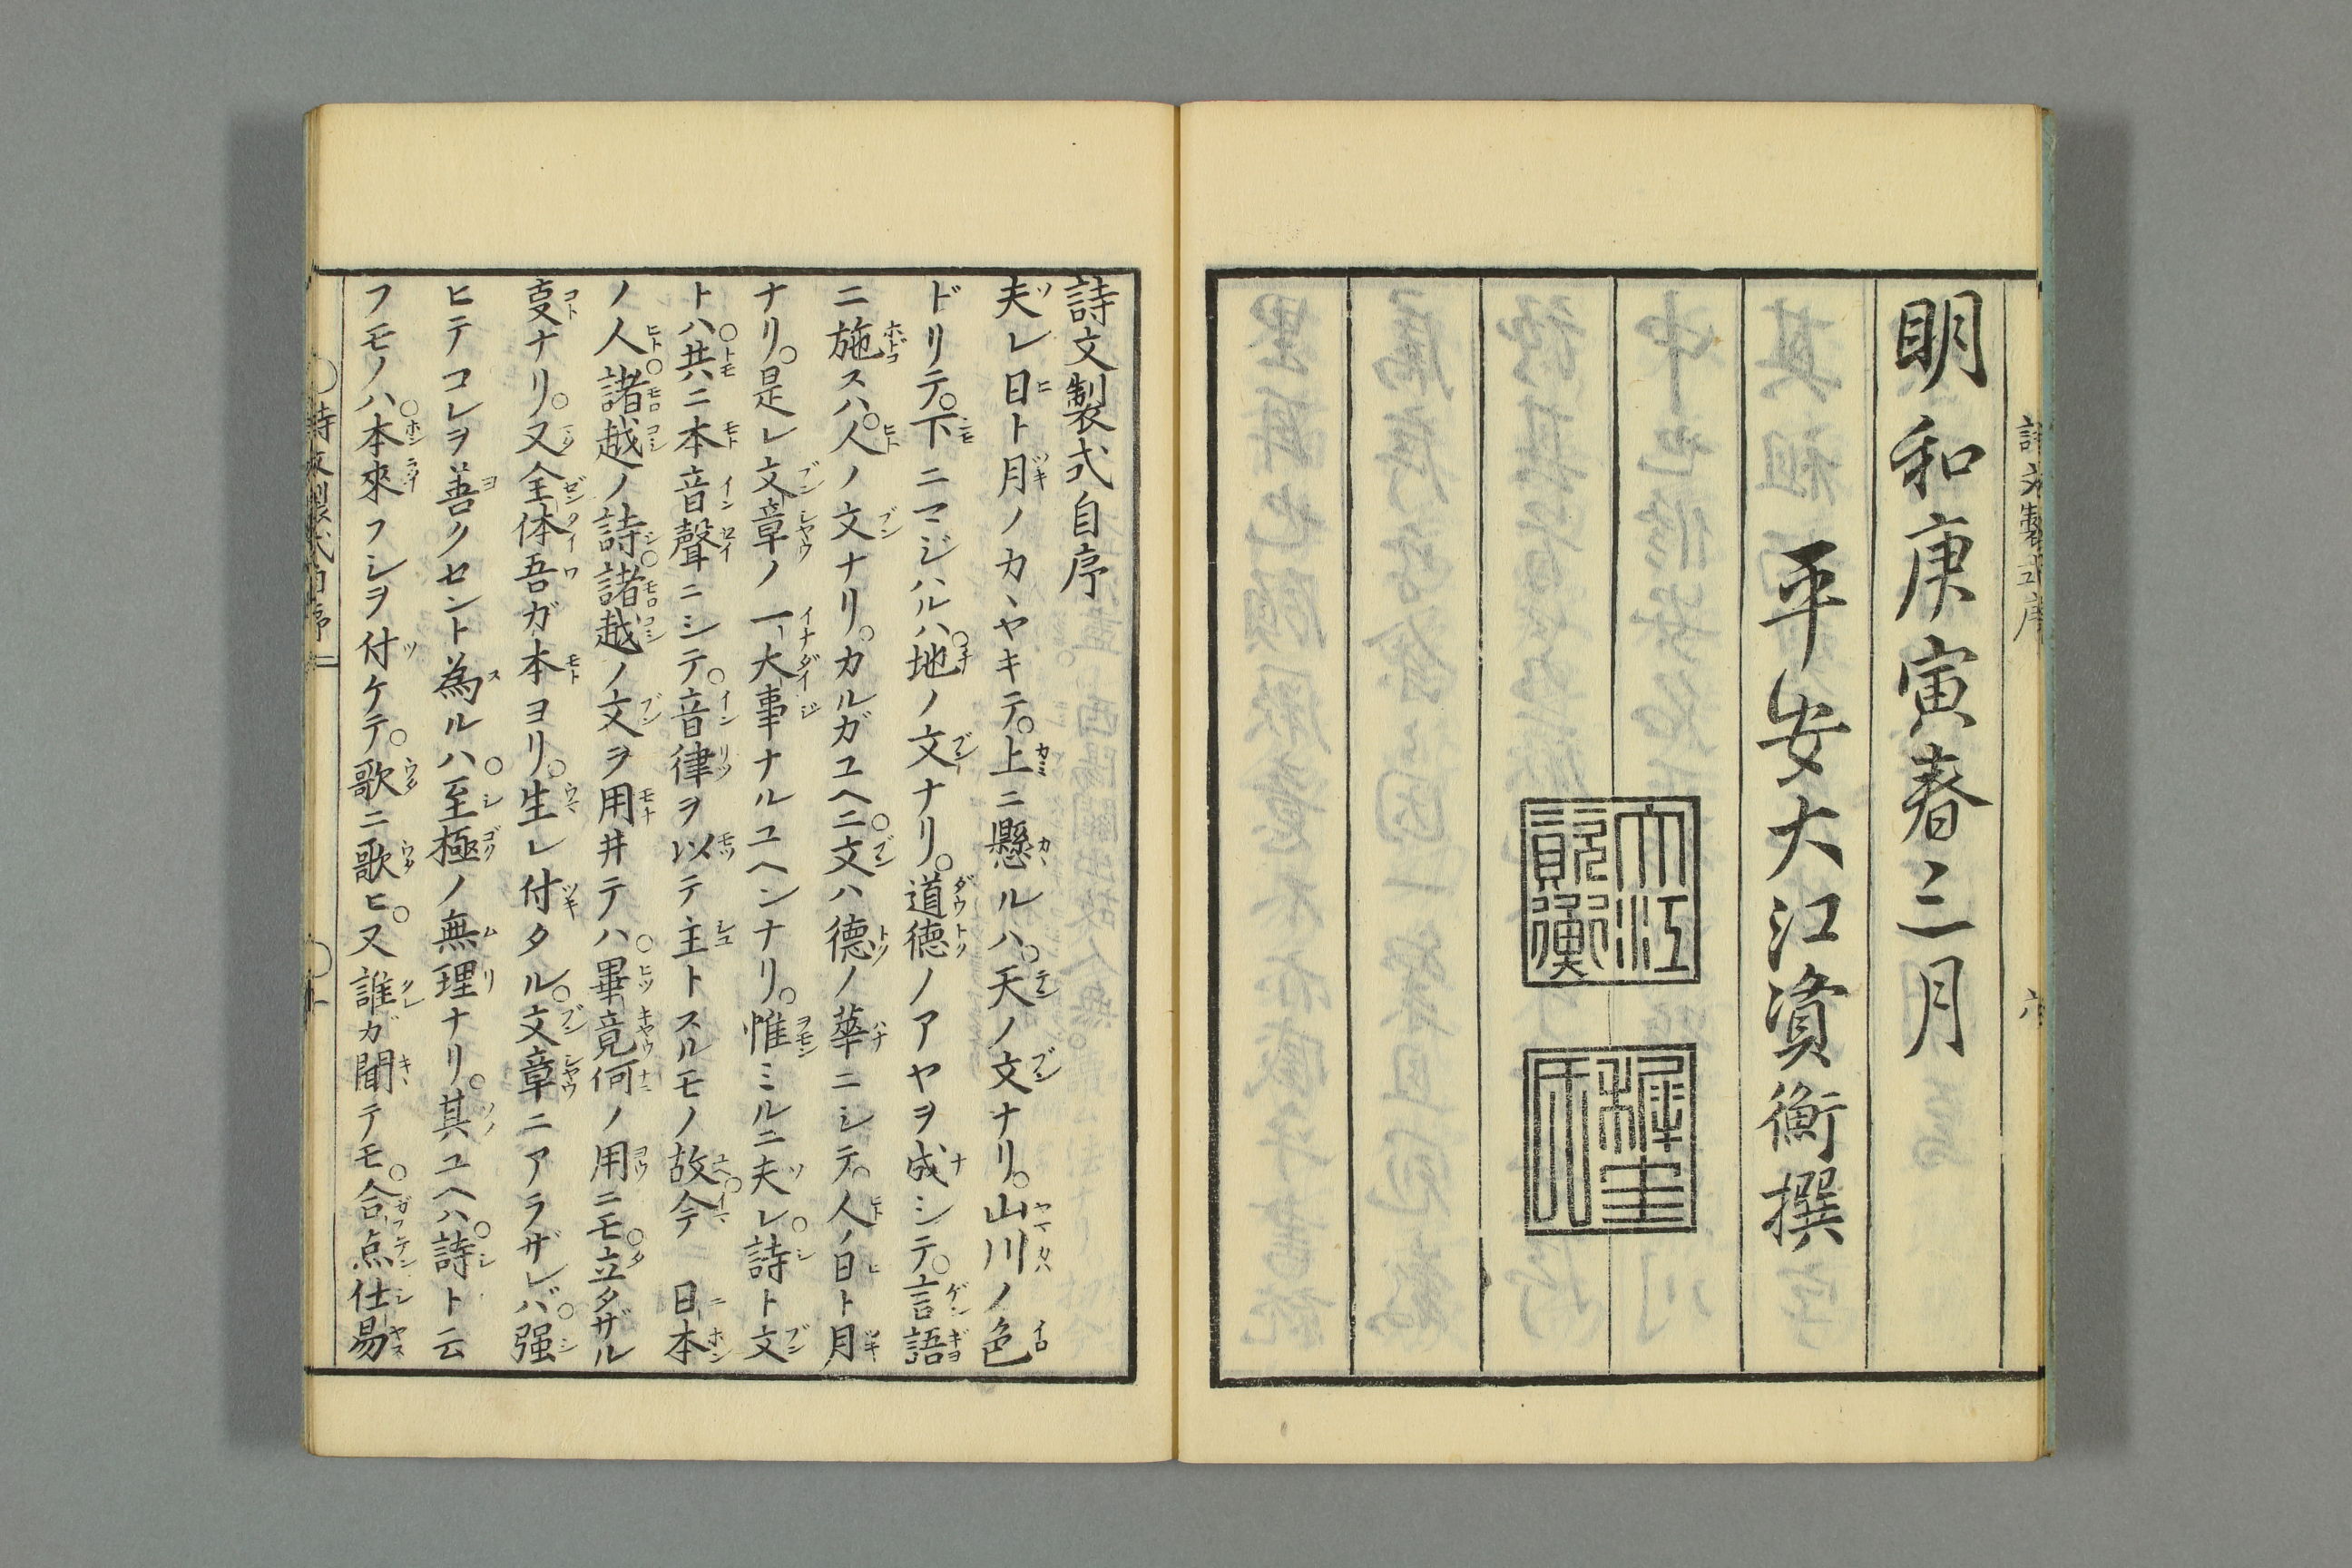 明和庚寅春三月
平安大江資衡撰
大江
資衡
穉圭
詩文製式自序
夫レ日ト月ノカヽヤキテ。上ニ懸ルハ。天ノ文ナリ。山川ノ色
ドリテ。下ニマジハルハ。地ノ文ナリ。道徳ノアヤヲ成シテ。言語
ニ施スハ。人ノ文ナリ。カルガユヘニ。文ハ德ノ華ニシテ。人ノ日ト月
ナリ。是レ文章ノ一大事ナルユヘンナリ。惟ミルニ夫レ。詩ト文
トハ。共ニ本音聲ニシテ。音律ヲ以テ主トスルモノ故。今 日本
ノ人。諸越ノ詩。諸越ノ文ヲ用井テハ。畢竟何ノ用ニモ。立タザル
㕝ナリ。又全体吾ガ本ヨリ。生レ付タル。文章ニアラザレバ。强
ヒテコレヲ善クセント為ルハ。至極ノ無理ナリ。其ユヘハ。詩ト云
フモノハ。本來フシヲ付ケテ。歌ニ歌ヒ。又誰ガ聞テモ。合点仕易